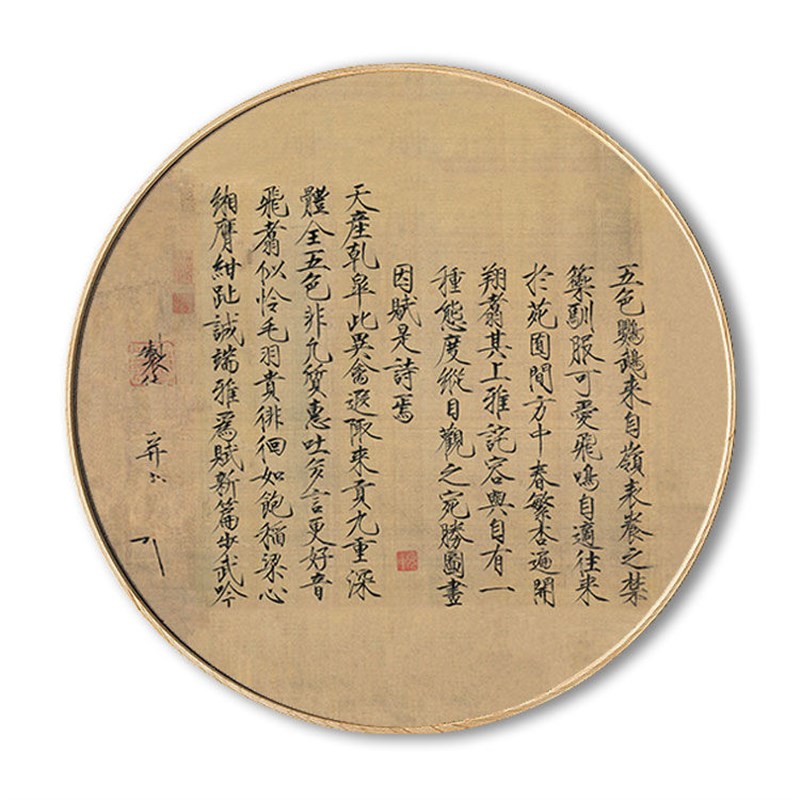 五色鸚鵡來自嶺表養之禁
籞馴服可愛飛鳴自適往來
於苑囿間方中春繁杏遍開
翔翥其上雅詫容與自有一
種態度縱目觀之宛勝圖畫
因賦是詩焉
天產乾皋此異禽遐陬來貢九重深
體全五色非凡質惠吐多言更好音
飛翥似怜毛羽貴徘徊如飽稻粱心
緗膺紺趾誠端雅爲賦新篇步武吟
製
并書